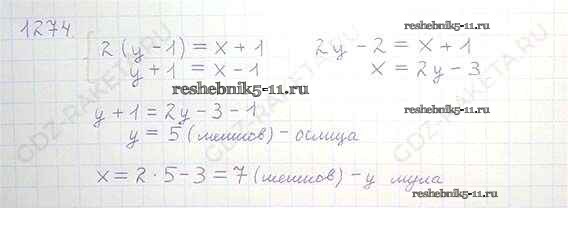 1274.
reshebnik5-11.ru
2(y-1)=x+1 2y-2=x+1
y+1=x-1 x=2y-3
reshebnik5-11.ru
y+1=2y-3-1 reshebnik5-11.ru
y=5(мешков)-ослица
x=2·5-3=7(мешков)-у мула
reshebnik5-11.ru
GDZ-RAKETA.RU